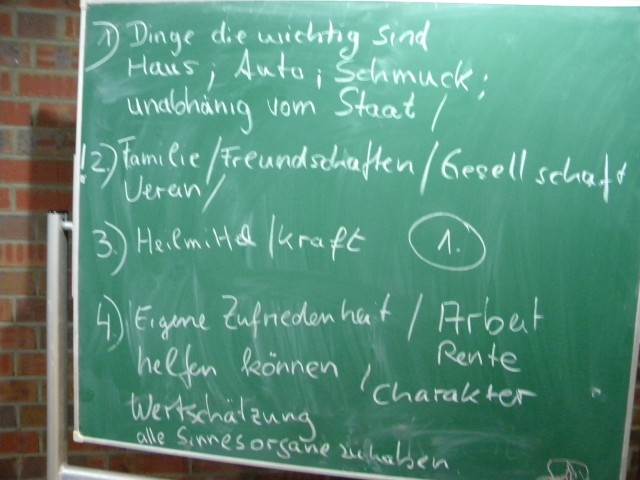 1) Dinge die wichtig sind
Haus; Auto; Schmuck;
unabhänig vom Staat /
!2.) Familie / Freundschaften / Gesellschaft
Verein /
3.) Heilmittel / Kraft 1.
4.) Eigene Zufriedenheit / Arbeit
Rente
helfen können / Charakter
Wertschätzung
alle Sinnesorgane zu haben.